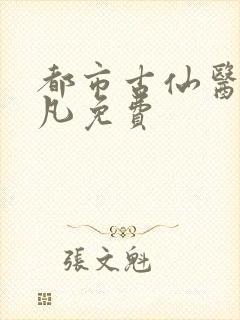 都市古仙醫
凡免費
張文魁